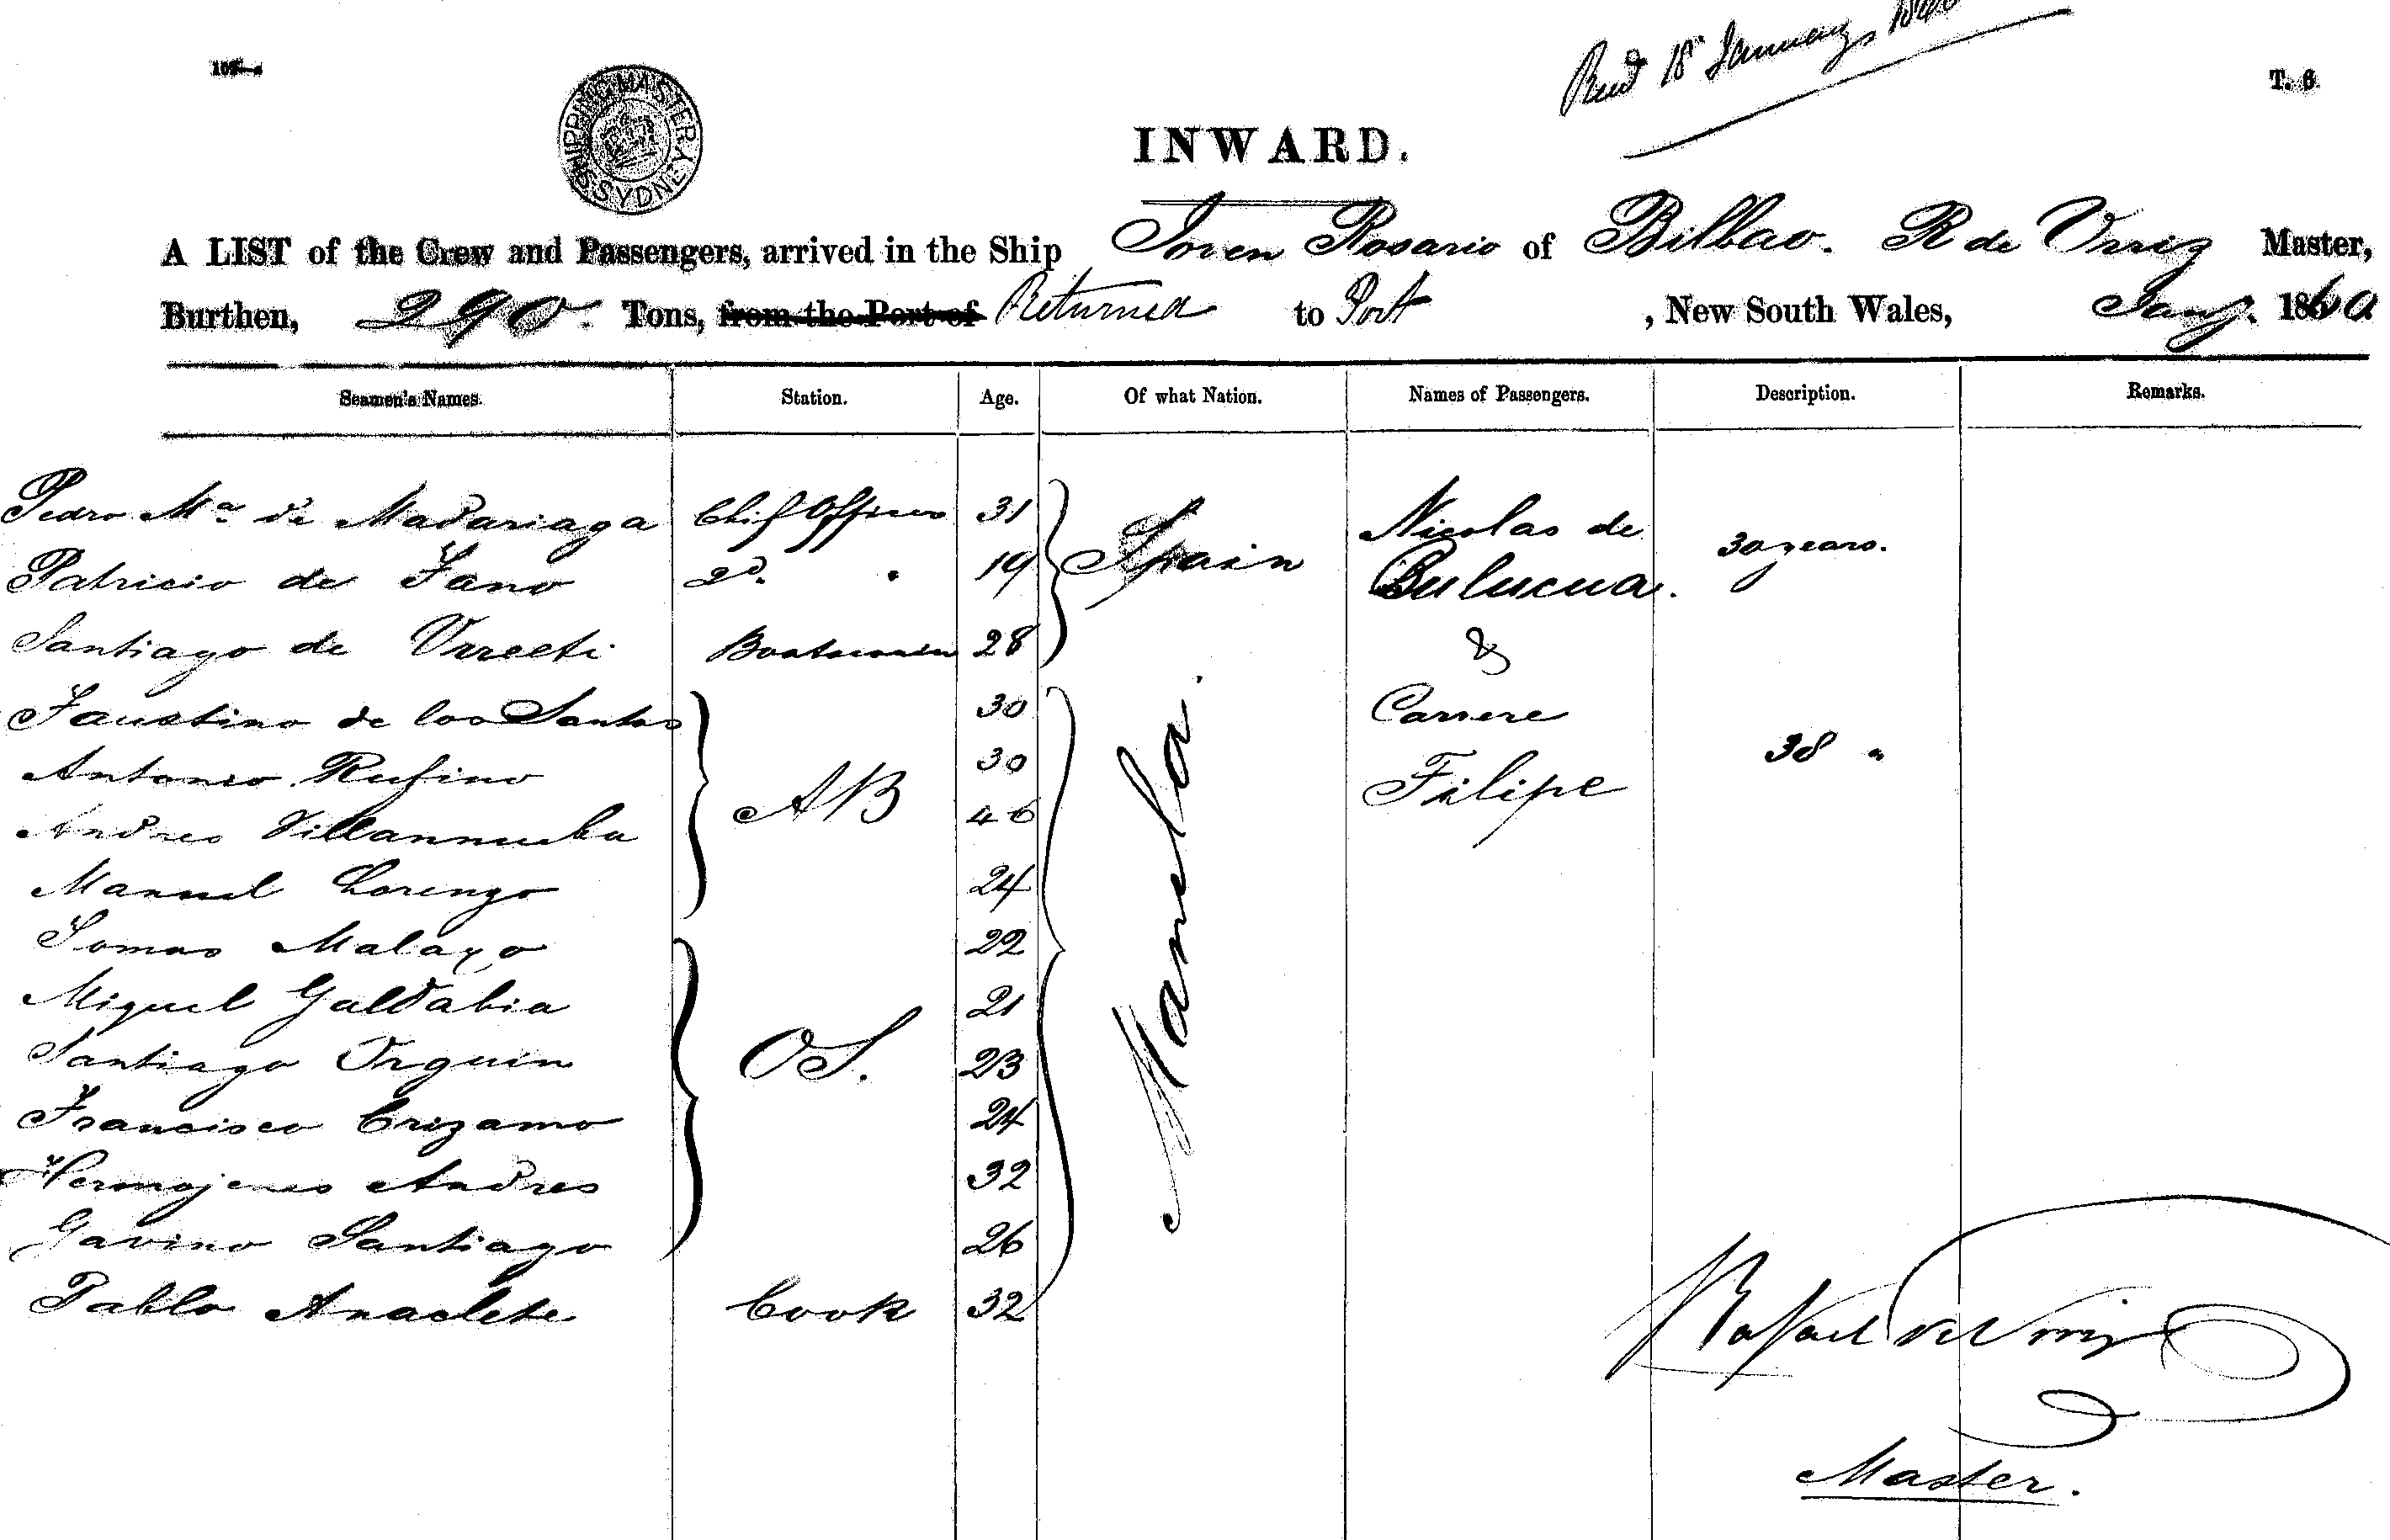 Recd 18 January 1860
T. 6
SHIPPING MASTER SYDNEY
INWARD.
A LIST of the Crew and Passengers, arrived in the Ship Joven Rosario of Bilbao. R de Urriz Master,
Burthen, 290 Tons, from the Port of Returned to Port, New South Wales, Jany. 1860
Seamen's Names. Station. Age. Of what Nation. Names of Passengers. Description. Remarks.
Pedro Ma. de Madariaga Chif Officer 31 Spain Nicolas de 30 years.
Patricio de Fano 2d. " 19 Bulucua.
Santiago de Urreeti Boatswain 28 &
Faustino de los Santos AB 30 Manela. Carrere
Antonio Rufino 30 Filipe 38 "
Andres Villannueba 46
Manuel Lorenzo 24
Tomas Malayo OS. 22
Miguel Galdabia 21
Santiago Orguin 23
Francisco Crizamo 24
Hermojenes Andres 32
Gavino Santiago 26
Pablo Anaclete Cook 32
Rafael de Urriz
Master.